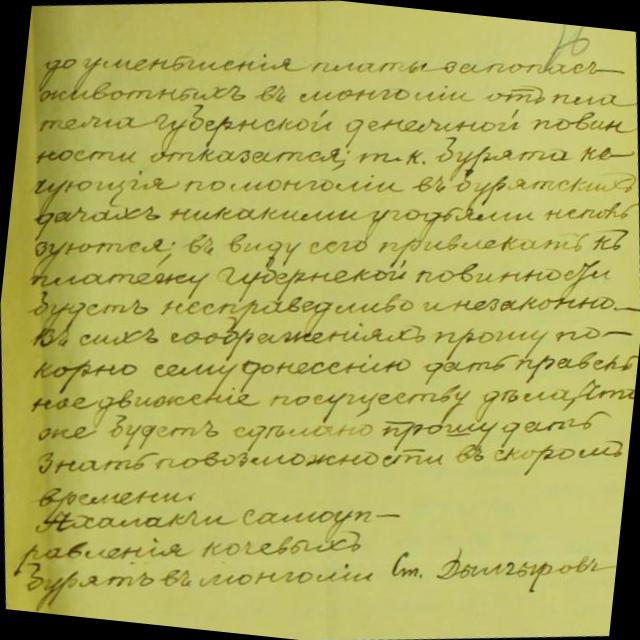 до уменьшенія платы запопасъ
животныхъ въ монголіи отъ пла
тежа Губернской денежной повин
ности отказатся; т.к. Буряты ко
чующія помонголіи въ бурятскихъ
дачахъ никакими угодьями непољ
зуются; въ виду сего привлекать къ
платежу Губернской повинности
будетъ несправедливо инезаконно.
Въ сихъ соображеніяхъ прошу по-
корно сему донесенію дать правель
ное движеніе посуществу дѣла, Что
же будетъ сдѣлано прошу дать
знать повозможности въ скоромъ
времени.
Ахалакчи самоуп-
равленія кочевыхъ
Бурятъ въ монголіи Ст. Дылгыровъ